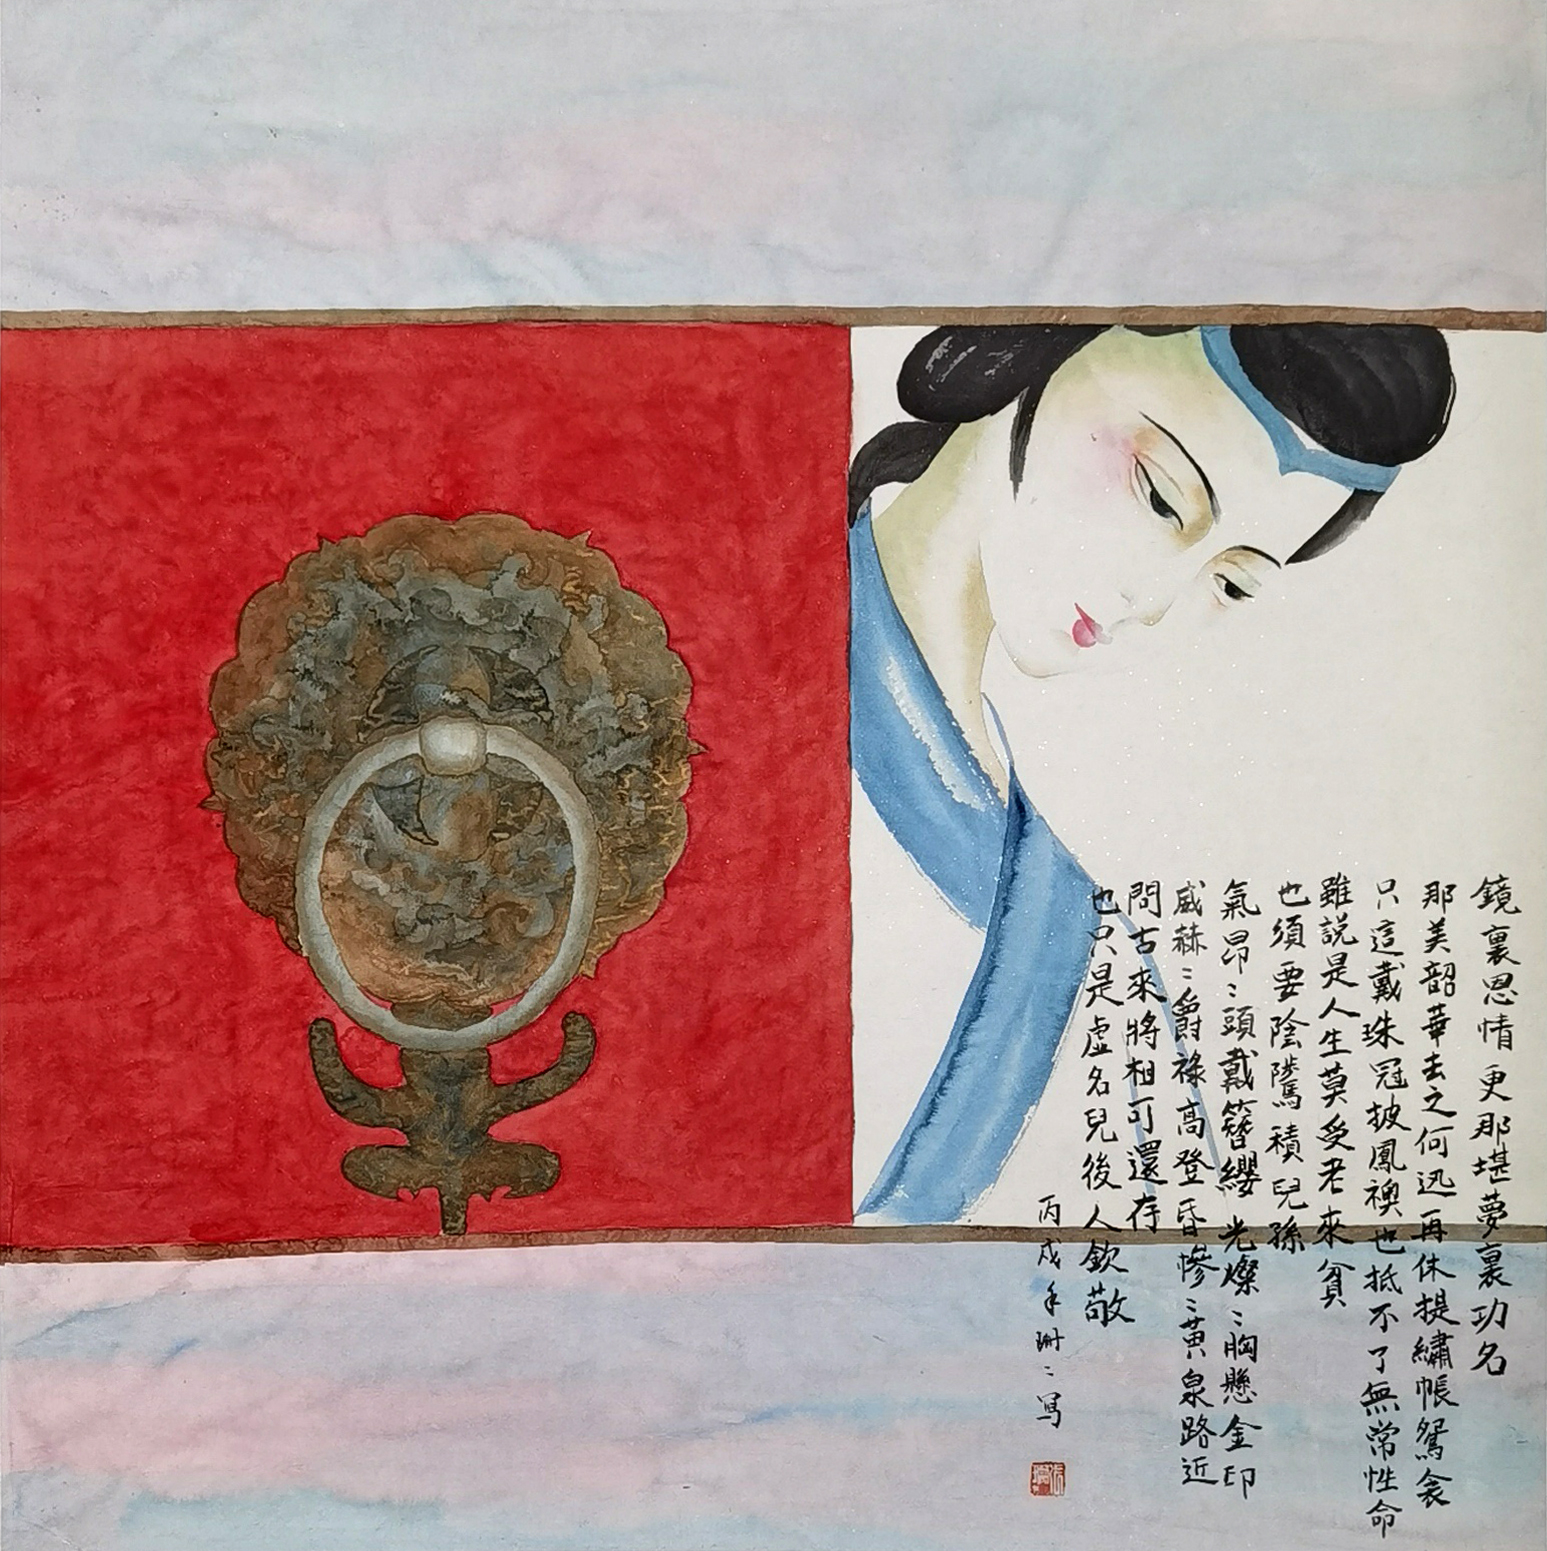 鏡裏恩情更那堪夢裏功名
那美韶華去之何迅再休提繡帳鴛衾
只這戴珠冠披鳳襖也抵不了無常性命
雖説是人生莫受老來貧
也須要陰騭積兒孫
氣昂〻頭戴簪纓光燦〻胸懸金印
威赫〻爵祿高登昏慘〻黃泉路近
問古來將相可還存
也只是虛名兒後人欽敬
丙戌年珊〻寫